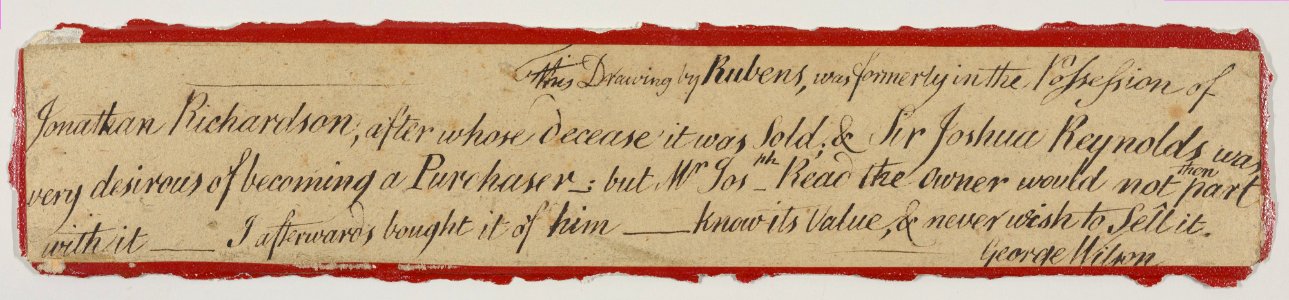 This Drawing by Rubens, was formerly in the Possession of
Jonathan Richardson, after whose decease it was Sold; & Sir Joshua Reynolds was
very desirous of becoming a Purchaser_: but Mr Josphh Read the owner would not then part
with it — I afterwards bought it of him — know its Value, & never wish to Sell it.
George Wilson